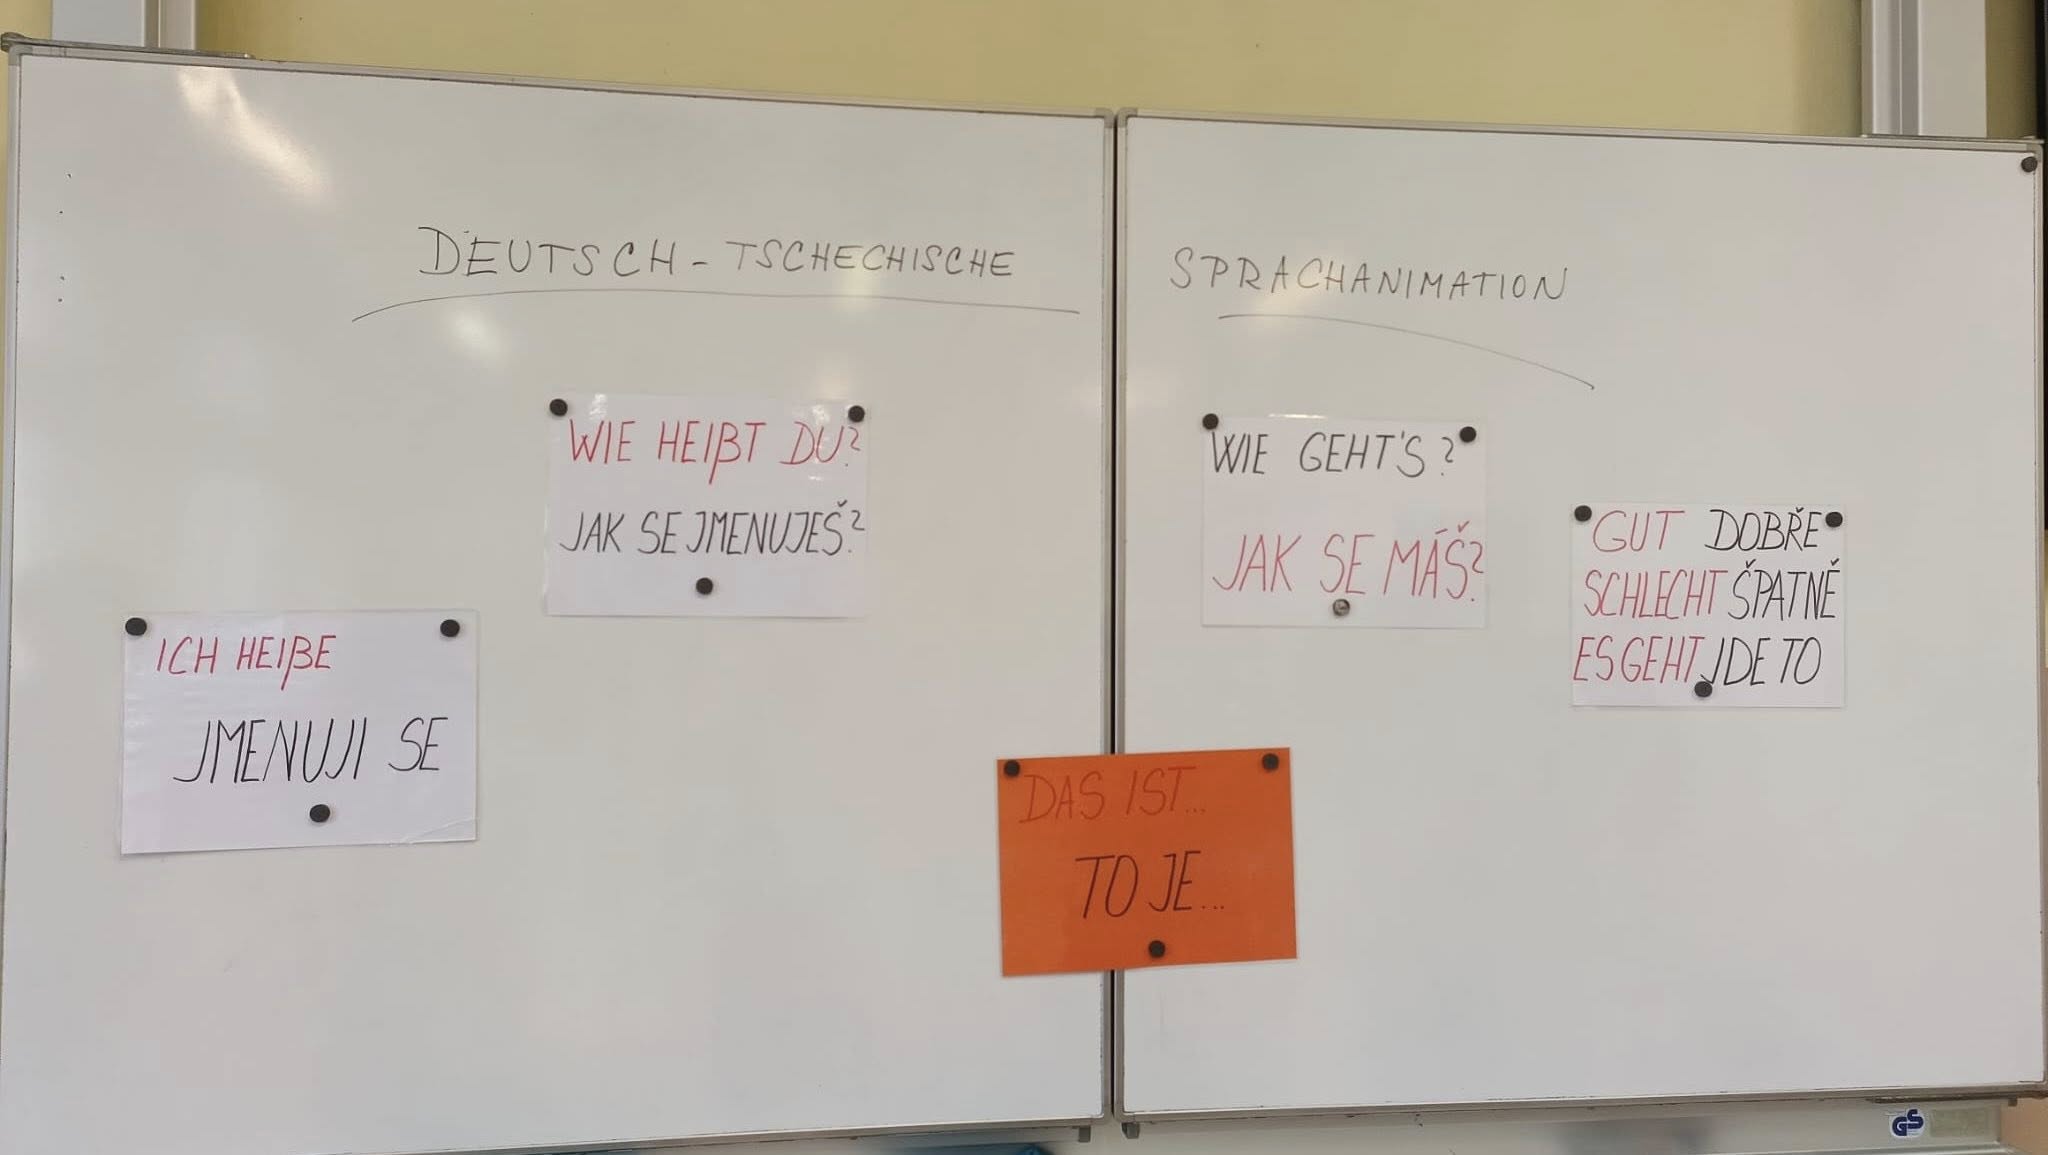 DEUTSCH - TSCHECHISCHE SPRACHANIMATION
WIE HEIßT DU?
JAK SE JMENUJEŠ?
ICH HEIßE
JMENUJI SE
WIE GEHT'S?
JAK SE MÁŠ?
GUT DOBŘE
SCHLECHT ŠPATNĚ
ES GEHT JDE TO
DAS IST...
TO JE...
GS